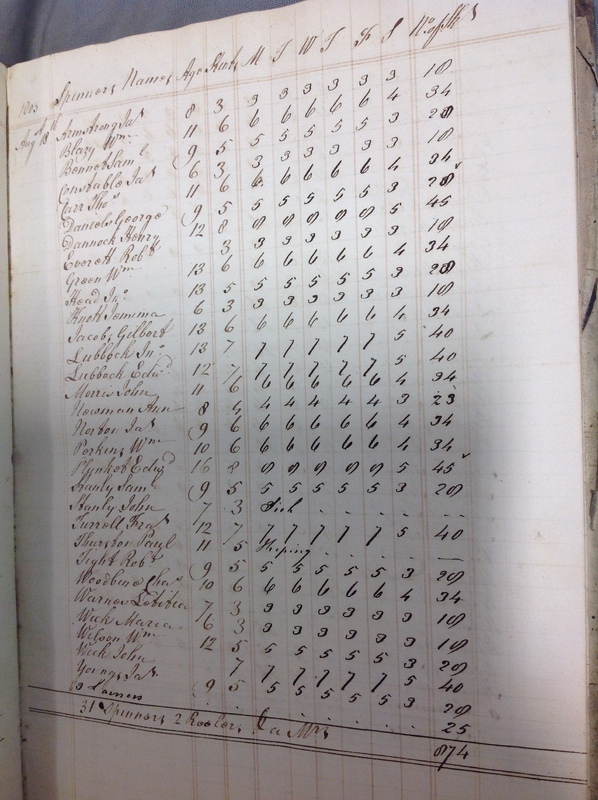 1803 Spinners Names Age Stint M T W T F S No of sks
Augt 18th Armstrong Jas 8 3 3 3 3 3 3 3 18
Blazy Wm 11 6 6 6 6 6 6 4 34
Bennet Saml 9 5 5 5 5 5 5 3 28
Constable Jas 6 3 3 3 3 3 3 3 18
Carr Thos 11 6 6 6 6 6 6 4 34
Daniels George 9 5 5 5 5 5 5 3 28
Dannock Henry 12 8 8 8 8 8 8 5 45
Everett Robt 3 3 3 3 3 3 3 18
Green Wm 13 6 6 6 6 6 6 4 34
Head Jno 13 5 5 5 5 5 5 3 28
Knott Jemima 6 3 3 3 3 3 3 3 18
Jacobs Gilbert 13 6 6 6 6 6 6 4 34
Lubbock Jno 13 7 7 7 7 7 7 5 40
Lubbock Edwd 12 7 7 7 7 7 7 5 40
Morris John 11 6 6 6 6 6 6 4 34
Newman Ann 8 4 4 4 4 4 4 3 23
Norton Jas 9 6 6 6 6 6 6 4 34
Perkins Wm 10 6 6 6 6 6 6 4 34
Plunket Edwd 16 8 8 8 8 8 8 5 45
Stanly Saml 9 5 5 5 5 5 5 3 28
Stanly John 7 3 Sick
Turrell Fras 12 7 7 7 7 7 7 5 40
Thurston Paul 11 5
Tight Robt 9 5 5 5 5 5 5 3 28
Woodbine Chas 10 6 6 6 6 6 6 4 34
Warnes Letitia 7 3 3 3 3 3 3 3 18
Wick Maria 6 3 3 3 3 3 3 3 18
Wilson Wm 12 5 5 5 5 5 5 3 28
Wick John 7 7 7 7 7 7 5 40
Youngs Jas 9 5 5 5 5 5 5 3 28
3 Learners 25
31 Spinners 2 Reelers & a Mrs 874